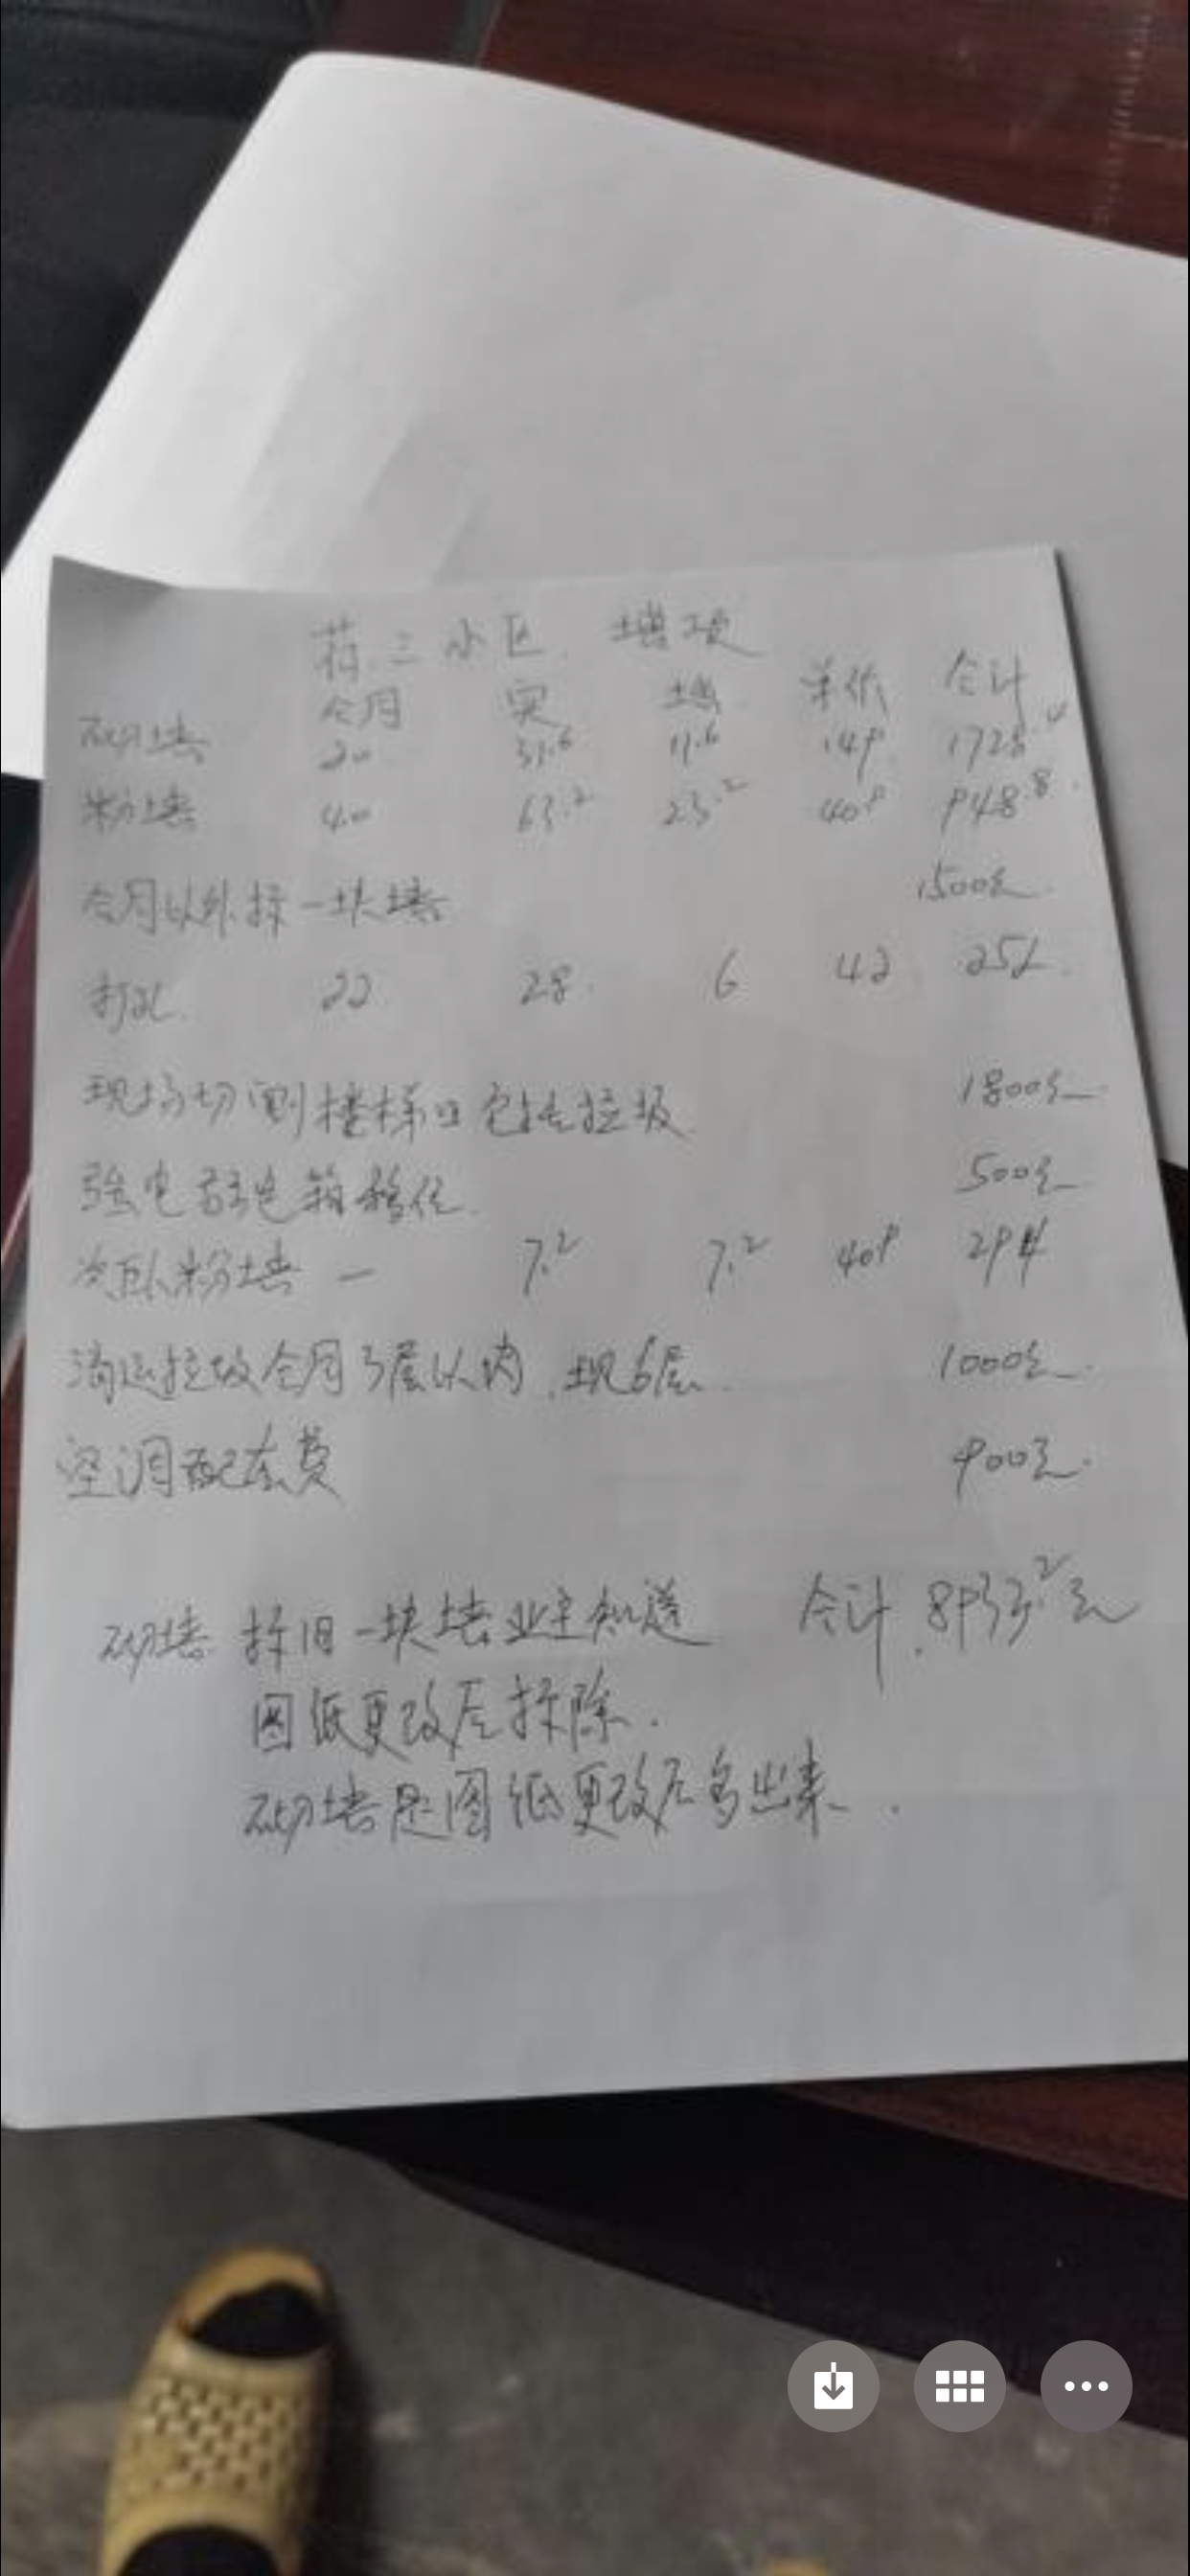 荷三小区 增项
合同 实 增 单价 合计
砌墙 20 31.6 11.6 149 1728.4
粉墙 40 63.2 23.2 40.9 948.8
合同以外拆一块墙 1500元
打孔 22 28 6 42 252
现场切割楼梯口包括垃圾 1800元
强电弱电箱移位 500元
次卧粉墙 一 7.2 7.2 40.9 294
清运垃圾合同3层以内.现6层 1000元
空调配套费 900元
砌墙 拆旧一块墙业主知道 合计.8933.2元
图纸更改后拆除.
砌墙是图纸更改后多出来.